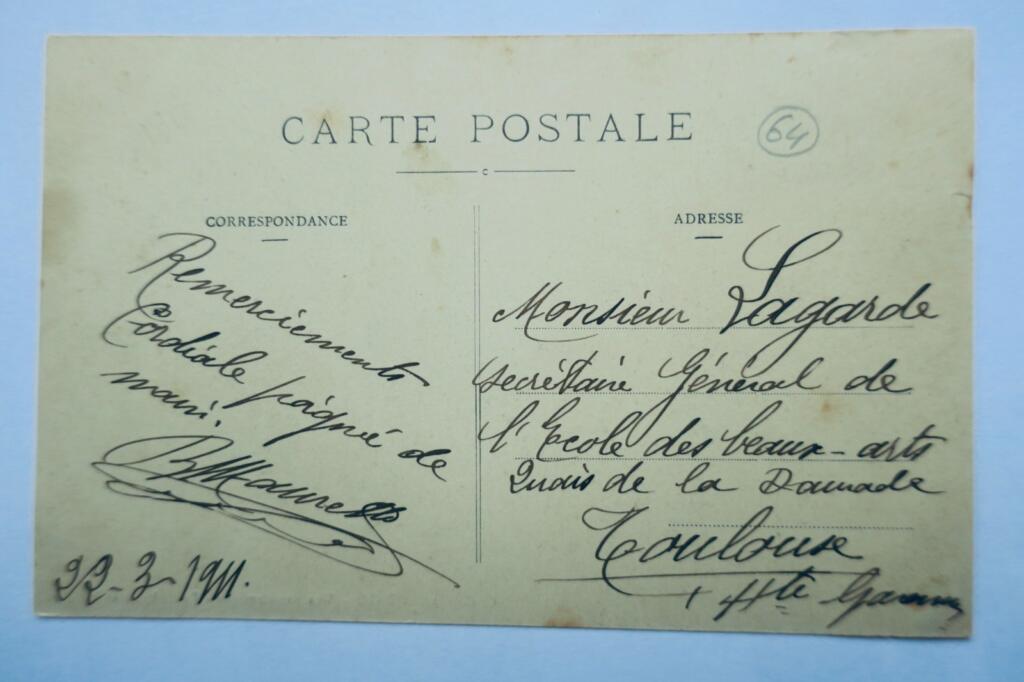 CARTE POSTALE
64
CORRESPONDANCE
Remerciements
Cordiale poignée de
main.
22-3-1911.
ADRESSE
Monsieur Lagarde
secrétaire Général de
l'Ecole des beaux-arts
Quais de la Daurade
Toulouse
Hte Garonne